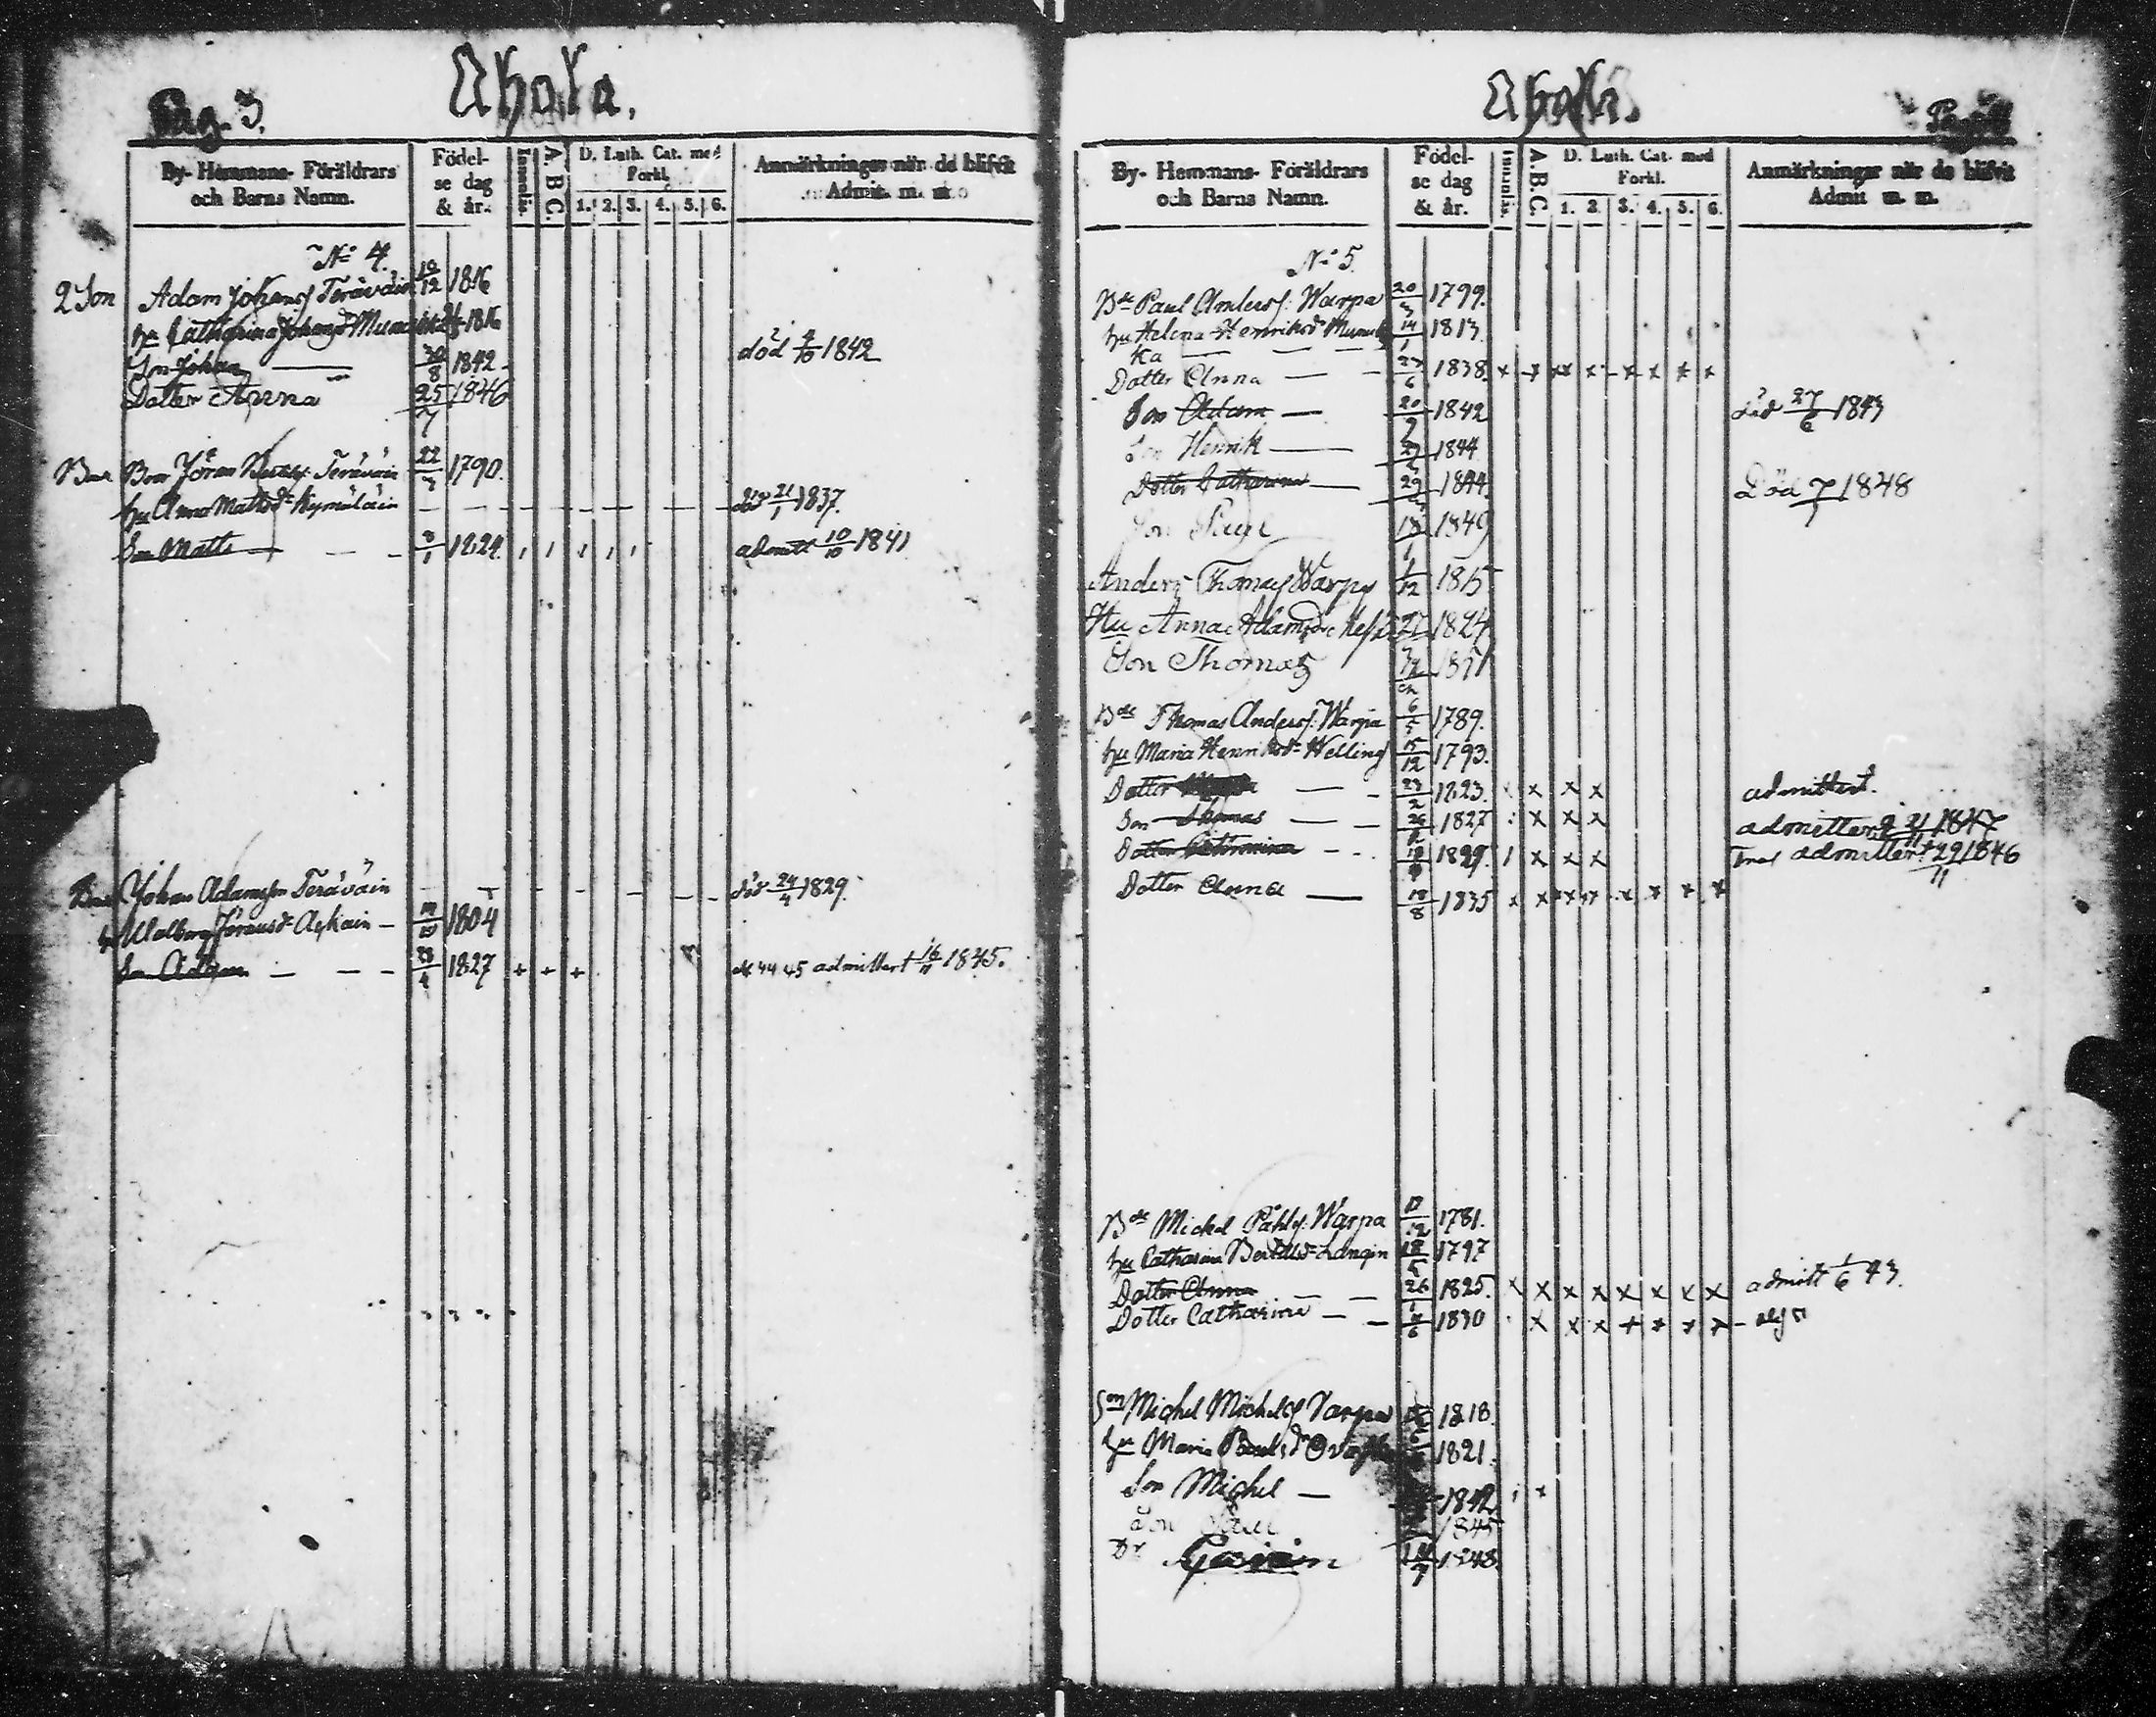 Pag. 3.
Ahola.
By- Hemmans- Föräldrars och Barns Namn.
Födelse dag & år.
Innanläs.
A. B. C.
D. Luth. Cat. med Forkl.
1. 2. 3. 4. 5. 6.
Anmärkningar när de blifvit Admit. m. m.
No 4.
2 Son Adam Johans Teräväin 10/12 1816
hu Catharina Johansd 1816
Son Johan 30/8 1842 död 4/10 1842
Dotter Anna 25/7 1846
Bror Jöran Teräväin 22/3 1790.
hu Anna Matsd Kymäläin död 21/1 1837.
Son Matts 3/1 1824. admitt 10/10 1841
Johan Adamsson Teräväin död 24/4 1829.
hu Walborg Jöransd 1804
Son Adam 23/4 1827 + + + 44 45 admittert 16/11 1845.
Ahola.
By- Hemmans- Föräldrars och Barns Namn.
Födelse dag & år.
Innanläs.
A. B. C.
D. Luth. Cat. med Forkl.
1. 2. 3. 4. 5. 6.
Anmärkningar när de blifvit Admit m. m.
No 5.
Bde Paul Anders. Warpa 20/3 1799.
hu Helena Henriksd 14/1 1813.
ka
Dotter Anna 23/6 1838. x x xx x x x x x
Son Adam 20/9 1842 död 27/6 1843
Son Henrik 1844
Dotter Catharina 29 1844. Död 7/1 1848
Son Paul 18/1 1849
Anders Thomas Warpa 1/12 1815
Hu Anna Adamsd 27 1824
Son Thomas
Bde Thomas Anders. Warpa 6 1789.
hu Maria Henriksd Welling 15/12 1793.
Dotter 23/2 1823. x x x admittert.
Son Thomas 26 1827 x x x admittert 21/11 1847
Dotter Catharina 1829. x x x admittert 29/11 1846
Dotter Anna 18/8 1835 x x xx x x x x
Bde Michel Påhls. Warpa 1781.
hu Catharina Bertilsd Längin 1797
Dotter Anna 26/1 1825. x x x x x x x x admitt 1/6 43.
Dotter Catharina 1830 x x x x x x x
Son Michel Michels Varpa 1818
hu Maria Paulsd 1821.
Son Michel 1842
Son Paul 1845
Dr 14/7 1848